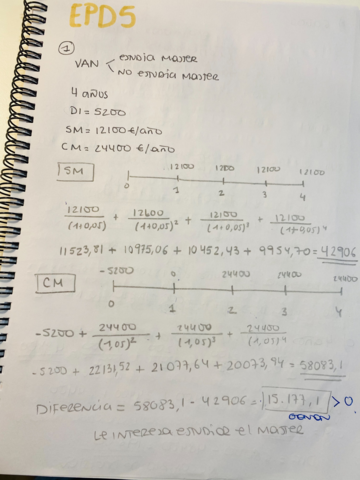 EPD5
1
VAN
ESTUDIA MASTER
NO ESTUDIA MASTER
4 años
DI = 5200
SM = 12100 €/año
CM = 24400 €/año
SM
12100 1200 12100 12100
0 1 2 3 4
12100/(1+0,05) + 12600/(1+0,05)² + 12100/(1+0,05)³ + 12100/(1+0,05)⁴
11523,81 + 10975,06 + 10452,43 + 9954,70 = 42906
CM
-5200 0 24400 24400 24400
0 1 2 3 4
-5200 + 24400/(1,05)² + 24400/(1,05)³ + 24400/(1,05)⁴
-5200 + 22131,52 + 21077,64 + 20073,94 = 58083,1
DIFERENCIA = 58083,1 - 42906 = 15.177,1 > 0
LE INTERESA ESTUDIAR EL MASTER